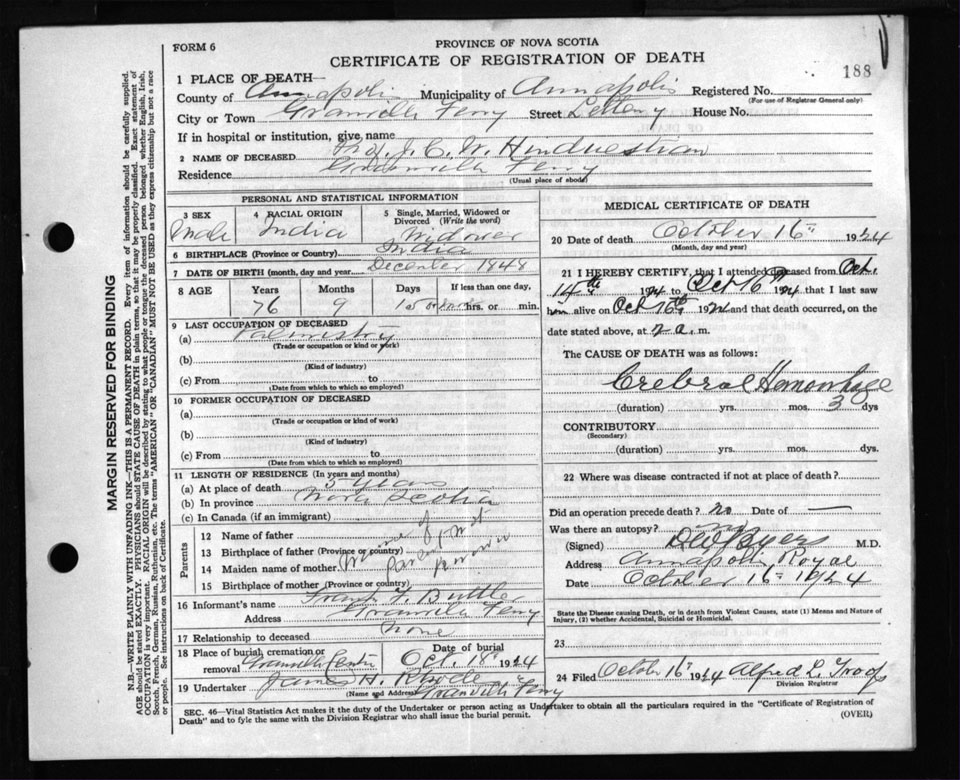 FORM 6
PROVINCE OF NOVA SCOTIA
CERTIFICATE OF REGISTRATION OF DEATH
188
1 PLACE OF DEATH—
County of Annapolis Municipality of Annapolis Registered No.
(For use of Registrar General only)
City or Town Granville Ferry Street House No.
If in hospital or institution, give name
2 NAME OF DECEASED Prof. J. C. W.
Residence Granville Ferry
(Usual place of abode)
PERSONAL AND STATISTICAL INFORMATION
3 SEX
Male
4 RACIAL ORIGIN
India
5 Single, Married, Widowed or Divorced (Write the word)
Widower
6 BIRTHPLACE (Province or Country) India
7 DATE OF BIRTH (month, day and year) December 1848
8 AGE Years Months Days If less than one day,
76 9 hrs. or min.
9 LAST OCCUPATION OF DECEASED
(a) Palmistry
(Trade or occupation or kind of work)
(b)
(Kind of industry)
(c) From to
(Date from which to which so employed)
10 FORMER OCCUPATION OF DECEASED
(a)
(Trade or occupation or kind of work)
(b)
(Kind of industry)
(c) From to
(Date from which to which so employed)
11 LENGTH OF RESIDENCE (In years and months)
(a) At place of death 5 years
(b) In province Nova Scotia
(c) In Canada (if an immigrant)
Parents
12 Name of father
13 Birthplace of father (Province or country)
14 Maiden name of mother
15 Birthplace of mother (Province or country)
name of
Parents not
known
16 Informant's name Frank F. Buttler
Address Granville Ferry
17 Relationship to deceased None
18 Place of burial cremation or removal Granville Centre
Date of burial
Oct. 18th 1924
19 Undertaker James H. Rhode
(Name and Address) Granville Ferry
MEDICAL CERTIFICATE OF DEATH
20 Date of death October 16th 1924
(Month, day and year)
21 I HEREBY CERTIFY, that I attended deceased from Oct.
14th 1924 to Oct 16th 1924 that I last saw
him alive on Oct 16th 1924 and that death occurred, on the
date stated above, at 2 a. m.
The CAUSE OF DEATH was as follows:
Crebral Hemorrhage
(duration) yrs. mos. 3 dys
CONTRIBUTORY
(Secondary)
(duration) yrs. mos. dys
22 Where was disease contracted if not at place of death?
Did an operation precede death? no Date of —
Was there an autopsy? no
(Signed) Byers M.D.
Address Annapolis Royal
Date October 16th 1924
State the Disease causing Death, or in death from Violent Causes, state (1) Means and Nature of Injury, (2) whether Accidental, Suicidal or Homicidal.
23
24 Filed October 16th 1924 Alfred L. Troop
Division Registrar
SEC. 46—Vital Statistics Act makes it the duty of the Undertaker or person acting as Undertaker to obtain all the particulars required in the "Certificate of Registration of
Death" and to fyle the same with the Division Registrar who shall issue the burial permit. (OVER)
MARGIN RESERVED FOR BINDING
N.B.—WRITE PLAINLY WITH UNFADING INK—THIS IS A PERMANENT RECORD. Every item of information should be carefully supplied.
AGE should be stated EXACTLY. PHYSICIANS should STATE CAUSE OF DEATH in plain terms, so that it may be properly classified. Exact statement of
OCCUPATION is very important. RACIAL ORIGIN will be described by stating to what people or tongue the deceased person belonged whether English, Irish,
Scotch, French, German, Russian, Ruthenian, etc. The terms "AMERICAN" OR "CANADIAN" MUST NOT BE USED as they express citizenship but not a race
or people. See instructions on back of Certificate.